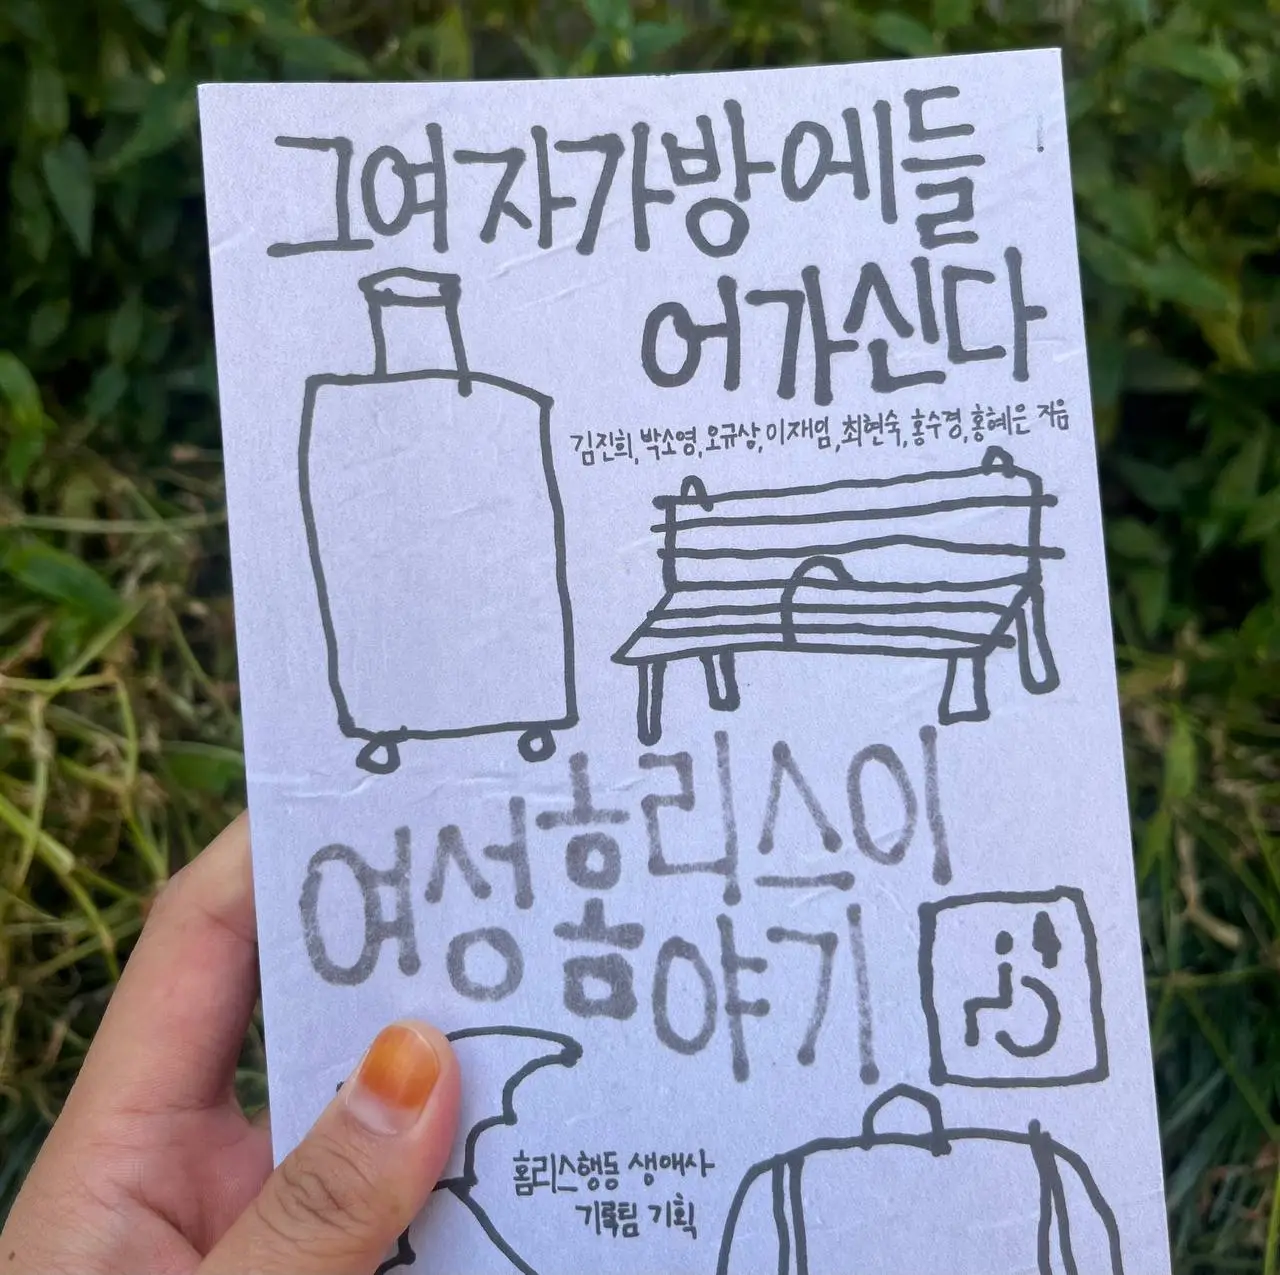 그여자가방에들
어가신다
김진희, 박소영, 오규상, 이재임, 최현숙, 홍수경, 홍혜은 지음
여성홈리스이
야기
홈리스행동 생애사
기록팀 기획